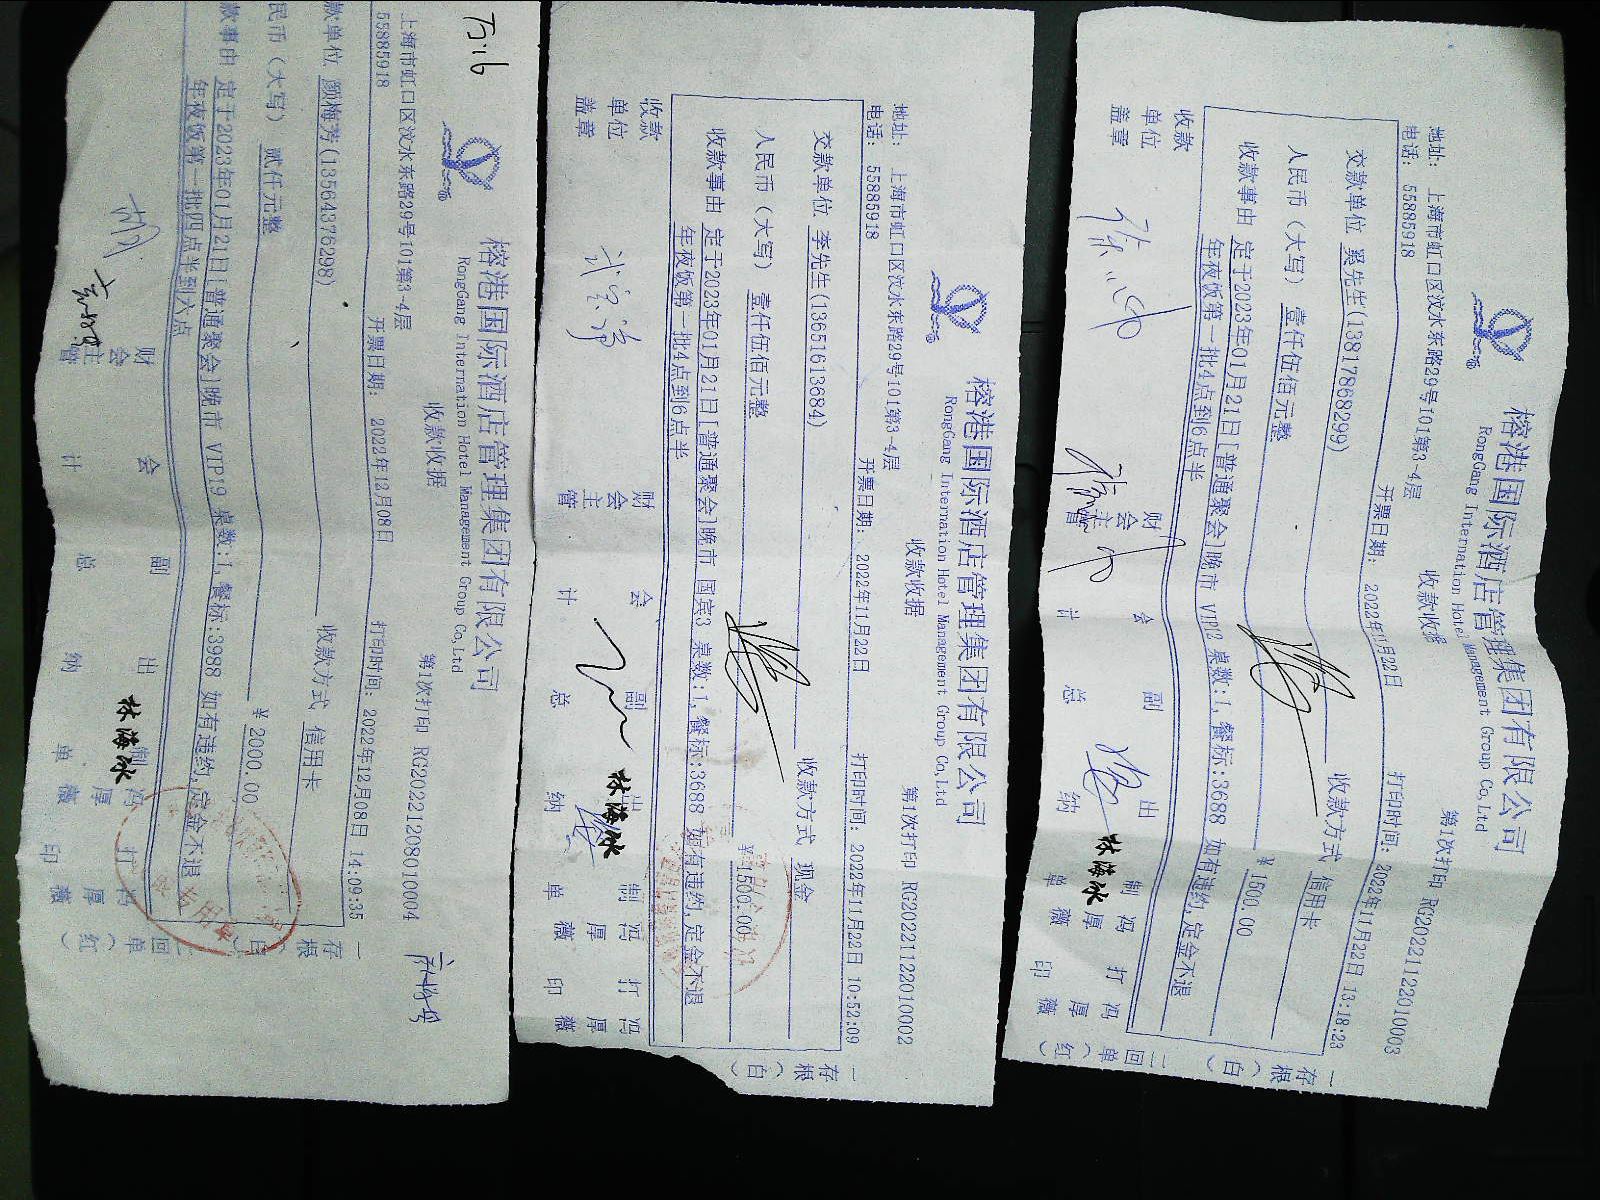 榕港国际酒店管理集团有限公司
RongGang International Hotel Management Group Co,Ltd
收款收据
第1次打印 RG20221208010004
上海市虹口区汶水东路29号101第3-4层
55885918
开票日期: 2022年12月08日
打印时间: 2022年12月08日 14:09:35
款单位 颜梅芳(13564376298)
收款方式 信用卡
民币（大写） 贰仟元整
￥ 2000.00
款事由 定于2023年01月21日[普通聚会]晚市 VIP19 桌数:1,餐标:3988 如有违约,定金不退
年夜饭第一批四点半到六点
财会主管
会计
副总
出纳
林海冰
制单 冯厚薇
打印 冯厚薇
一存根（白）
二回单（红）
榕港国际酒店管理集团有限公司
RongGang International Hotel Management Group Co,Ltd
收款收据
第1次打印 RG20221122010002
地址: 上海市虹口区汶水东路29号101第3-4层
电话: 55885918
开票日期: 2022年11月22日
打印时间: 2022年11月22日 10:52:09
交款单位 李先生(13651613684)
收款方式 现金
人民币（大写） 壹仟伍佰元整
￥ 1500.00
收款事由 定于2023年01月21日[普通聚会]晚市 国宾3 桌数:1,餐标:3688 如有违约,定金不退
年夜饭第一批4点到6点半
收款单位盖章
财会主管
会计
副总
出纳
林海冰
制单 冯厚薇
打印 冯厚薇
一存根（白）
榕港国际酒店管理集团有限公司
RongGang International Hotel Management Group Co,Ltd
收款收据
第1次打印 RG20221122010003
地址: 上海市虹口区汶水东路29号101第3-4层
电话: 55885918
开票日期: 2022年11月22日
打印时间: 2022年11月22日 13:18:23
交款单位 奚先生(13817868299)
收款方式 信用卡
人民币（大写） 壹仟伍佰元整
￥ 1500.00
收款事由 定于2023年01月21日[普通聚会]晚市 VIP2 桌数:1,餐标:3688 如有违约,定金不退
年夜饭第一批4点到6点半
收款单位盖章
财会主管
会计
副总
出纳
林海冰
制单 冯厚薇
打印 冯厚薇
一存根（白）
二回单（红）